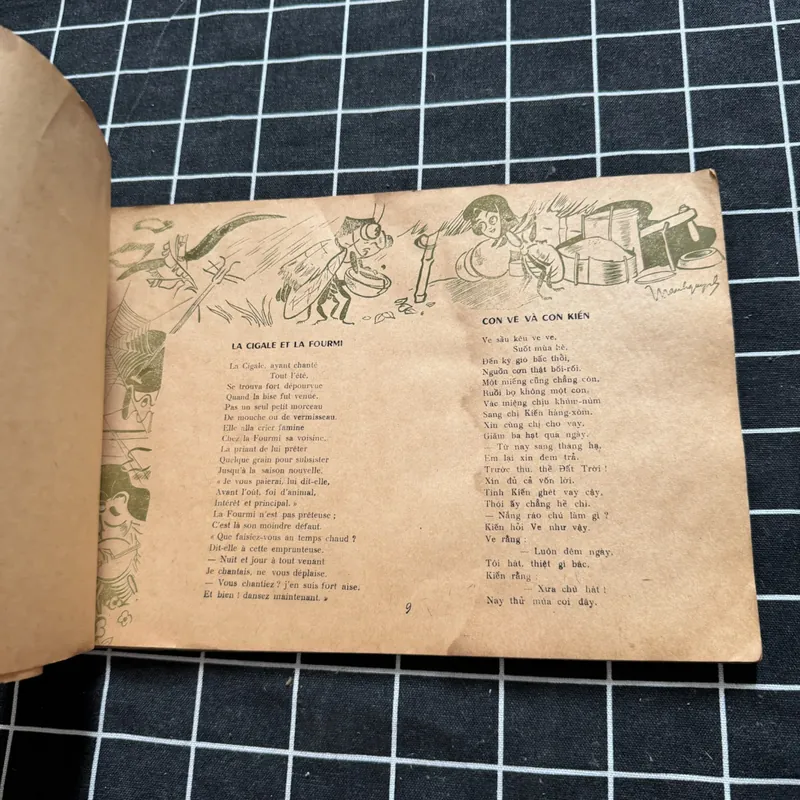 LA CIGALE ET LA FOURMI
La Cigale, ayant chanté
Tout l'été,
Se trouva fort dépourvue
Quand la bise fut venue,
Pas un seul petit morceau
De mouche ou de vermisseau.
Elle alla crier famine
Chez la Fourmi sa voisine,
La priant de lui prêter
Quelque grain pour subsister
Jusqu'à la saison nouvelle.
« Je vous paierai, lui dit-elle,
Avant l'oût, foi d'animal,
Intérêt et principal. »
La Fourmi n'est pas prêteuse ;
C'est là son moindre défaut.
« Que faisiez-vous au temps chaud ?
Dit-elle à cette emprunteuse.
— Nuit et jour à tout venant
Je chantais, ne vous déplaise.
— Vous chantiez ? j'en suis fort aise.
Et bien ! dansez maintenant. »
CON VE VÀ CON KIẾN
Ve sầu kêu ve ve,
Suốt mùa hè,
Đến kỳ gió bấc thổi,
Nguồn cơn thật bối-rối.
Một miếng cũng chẳng còn,
Ruồi bọ không một con.
Vác miệng chịu khúm-núm
Sang chị Kiến hàng-xóm.
Xin cùng chị cho vay,
Giăm ba hạt qua ngày.
— Từ nay sang tháng hạ,
Em lại xin đem trả.
Trước thu, thề Đất Trời !
Xin đủ cả vốn lời.
Tính Kiến ghét vay cậy,
Thói ấy chẳng hề chi.
— Nắng ráo chú làm gì ?
Kiến hỏi Ve như vậy.
Ve rằng :
— Luôn đêm ngày,
Tôi hát, thiệt gì bác.
Kiến rằng
— Xưa chú hát !
Nay thử múa coi đây.
Mạnhquỳnh
9